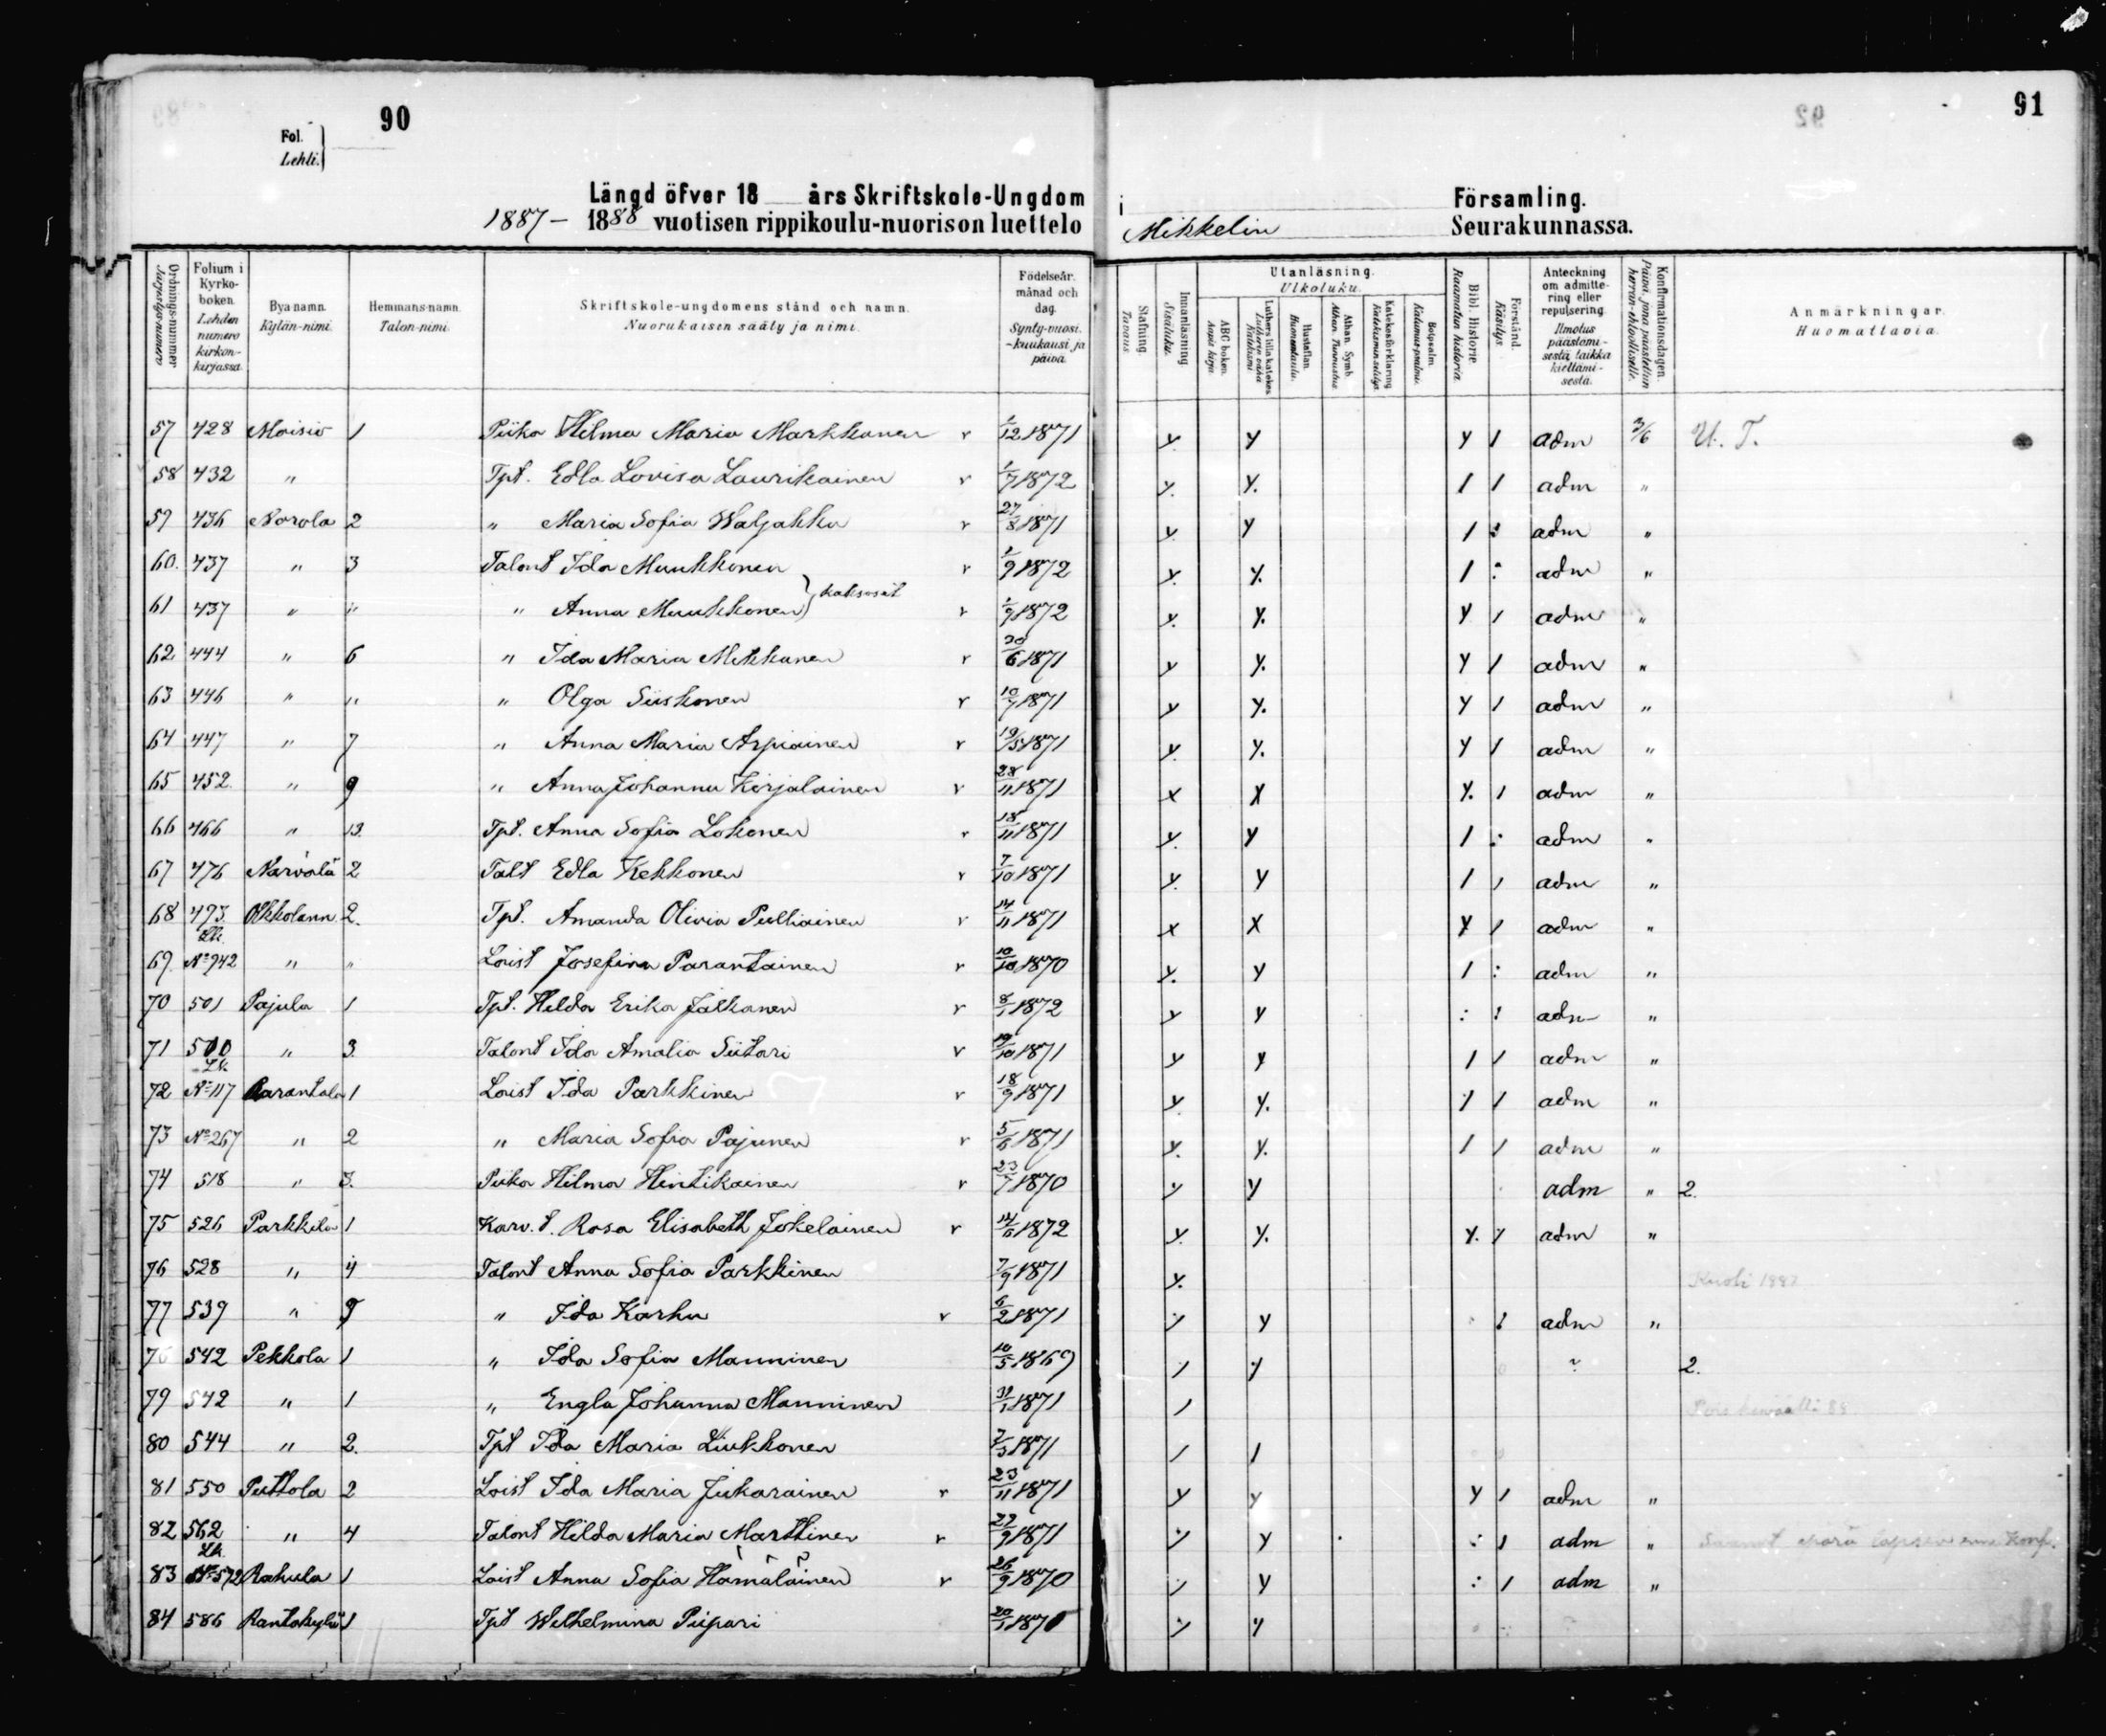 90
91
Fol.
Lehti.
Längd öfver 18 års Skriftskole-Ungdom i Församling.
1887 – 1888 vuotisen rippikoulu-nuorison luettelo Mikkelin Seurakunnassa.
Ordnings-nummer Järjestys-numero
Folium i Kyrko-boken. Lehden numero kirkon-kirjassa.
Bya namn. Kylän-nimi.
Hemmans-namn. Talon-nimi.
Skriftskole-ungdomens stånd och namn. Nuorukaisen sääty ja nimi.
Födelseår. månad och dag. Synty-vuosi. -kuukausi ja päivä.
Stafning. Tavaus.
Innanläsning. Sisäluku.
Utanläsning. Ulkoluku.
ABC boken. Aapis kirja.
Luthers lilla katekes Lutherin vähä Katekismi
Hustaflan. Huoneentaulu.
Athan. Symb. Athan. Tunnustus
Katekesförklaring Katekismin selitys
Botpsalm. Katumus-psalmi.
Bibl. Historie. Raamatun historia.
Förstånd. Käsitys.
Anteckning om admittering eller repulsering. Ilmotus päästämisestä taikka kieltämisestä.
Konfirmationsdagen. Päivä, jona päästettiin herran ehtoolliselle.
Anmärkningar. Huomattavia.
57 428 Moisio 1 Piika Hilma Maria Markkanen r 1/12 1871 y y y 1 adm 3/6 U. T.
58 432 " Tpt. Edla Lovisa Laurikainen r 1/7 1872 y. y. 1 1 adm "
59 436 Norola 2 " Maria Sofia Waljakka r 27/8 1871 y y 1 : adm "
60. 437 " 3 Talont Ida Muukkonen r 1/9 1872 y. y. 1 : adm "
61 437 " " " Anna Muukkonen } kaksoset r 1/9 1872 y. y. y 1 adm "
62 444 " 6 " Ida Maria Mikkanen r 30/6 1871 y y. y 1 adm "
63 446 " " " Olga Siiskonen r 10/7 1871 y y. y 1 adm "
64 447 " 7 " Anna Maria Arpiainen r 19/5 1871 y. y. y 1 adm "
65 452 " 9 " Anna Johanna Korjalainen r 28/11 1871 x x y. 1 adm "
66 466 " 13. Tpt. Anna Sofia Lokonen r 18/11 1871 y y 1 : adm "
67 476 Narvala 2 Talt Edla Kekkonen r 7/10 1871 y. y 1 1 adm "
68 493 Olkkolann. 2. Tpt. Amanda Olivia Pulliainen r 14/11 1871 x x y 1 adm "
Lk.
69. No 942 " " Loist Josefina Parantainen r 10/10 1870 y. y 1 : adm "
70 501 Pajula 1 Tpt. Hilda Erika Jalkanen r 8/1 1872 y y : : adm "
71 500 " 3. Talont Ida Amalia Siitari r 19/10 1871 y y 1 1 adm "
Lk.
72 No 117 Parantala 1 Loist Ida Parkkinen r 18/9 1871 y y. 1 1 adm "
73 No 267 " 2 " Maria Sofia Pajunen r 5/6 1871 y. y. 1 1 adm "
74 518 " 3. Piika Hilma Hintikainen r 23/7 1870 y y adm " 2.
75 526 Parkkila 1 Karv. t. Rosa Elisabeth Jokelainen r 14/6 1872 y. y. y. y adm "
76 528 " 4 Talont Anna Sofia Parkkinen 7/9 1871 y. Kuoli 1887
77 539 " 9 " Ida Karhu r 6/2 1871 y y : adm "
78 542 Pekkola 1 " Ida Sofia Manninen 10/5 1869 1 y ? 2.
79 542 " 1 " Engla Johanna Manninen 31/1 1871 1 88
80 544 " 2. Tpt Ida Maria Liukkonen 7/3 1871 1 1
81 550 Puttola 2 Loist Ida Maria Jukarainen r 23/11 1871 y y y 1 adm "
82 562 " 4 Talont Hilda Maria Marttinen r 22/9 1871 y y : 1 adm "
Lk.
83 No 572 Rahula 1 Loist Anna Sofia Hämäläinen r 26/9 1870 y y : 1 adm "
84 586 Rantakylä 1 Tpt Wilhelmina Piipari 20/1 1870 y y